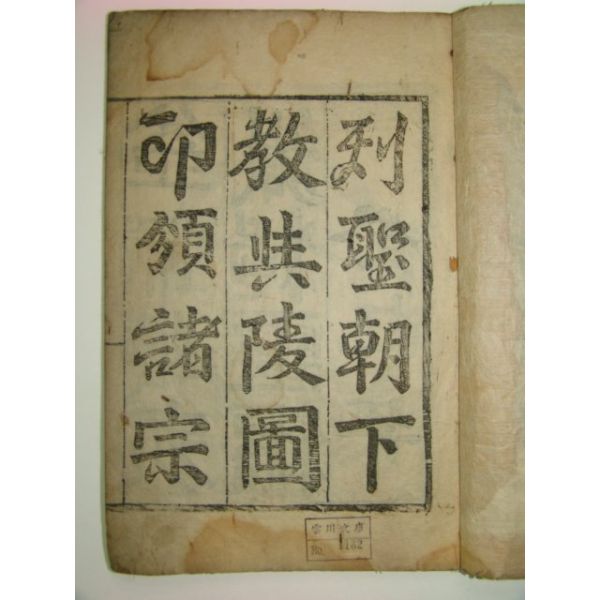 列聖朝下
教與陵圖
印頒諸宗
川文庫
No.